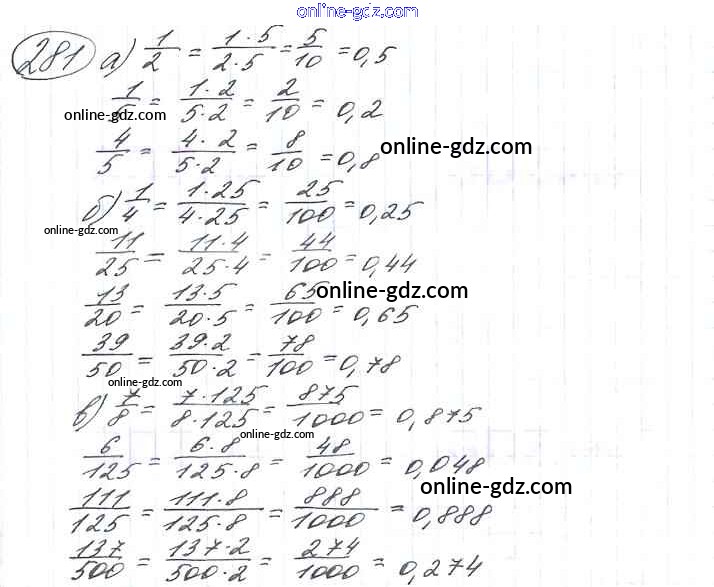 online-gdz.com
281 а) 1/2 = 1·5/2·5 = 5/10 = 0,5
1/5 = 1·2/5·2 = 2/10 = 0,2
online-gdz.com
4/5 = 4·2/5·2 = 8/10 = 0,8
online-gdz.com
б) 1/4 = 1·25/4·25 = 25/100 = 0,25
online-gdz.com
11/25 = 11·4/25·4 = 44/100 = 0,44
13/20 = 13·5/20·5 = 65/100 = 0,65
online-gdz.com
39/50 = 39·2/50·2 = 78/100 = 0,78
online-gdz.com
в) 7/8 = 7·125/8·125 = 875/1000 = 0,875
online-gdz.com
6/125 = 6·8/125·8 = 48/1000 = 0,048
online-gdz.com
111/125 = 111·8/125·8 = 888/1000 = 0,888
137/500 = 137·2/500·2 = 274/1000 = 0,274